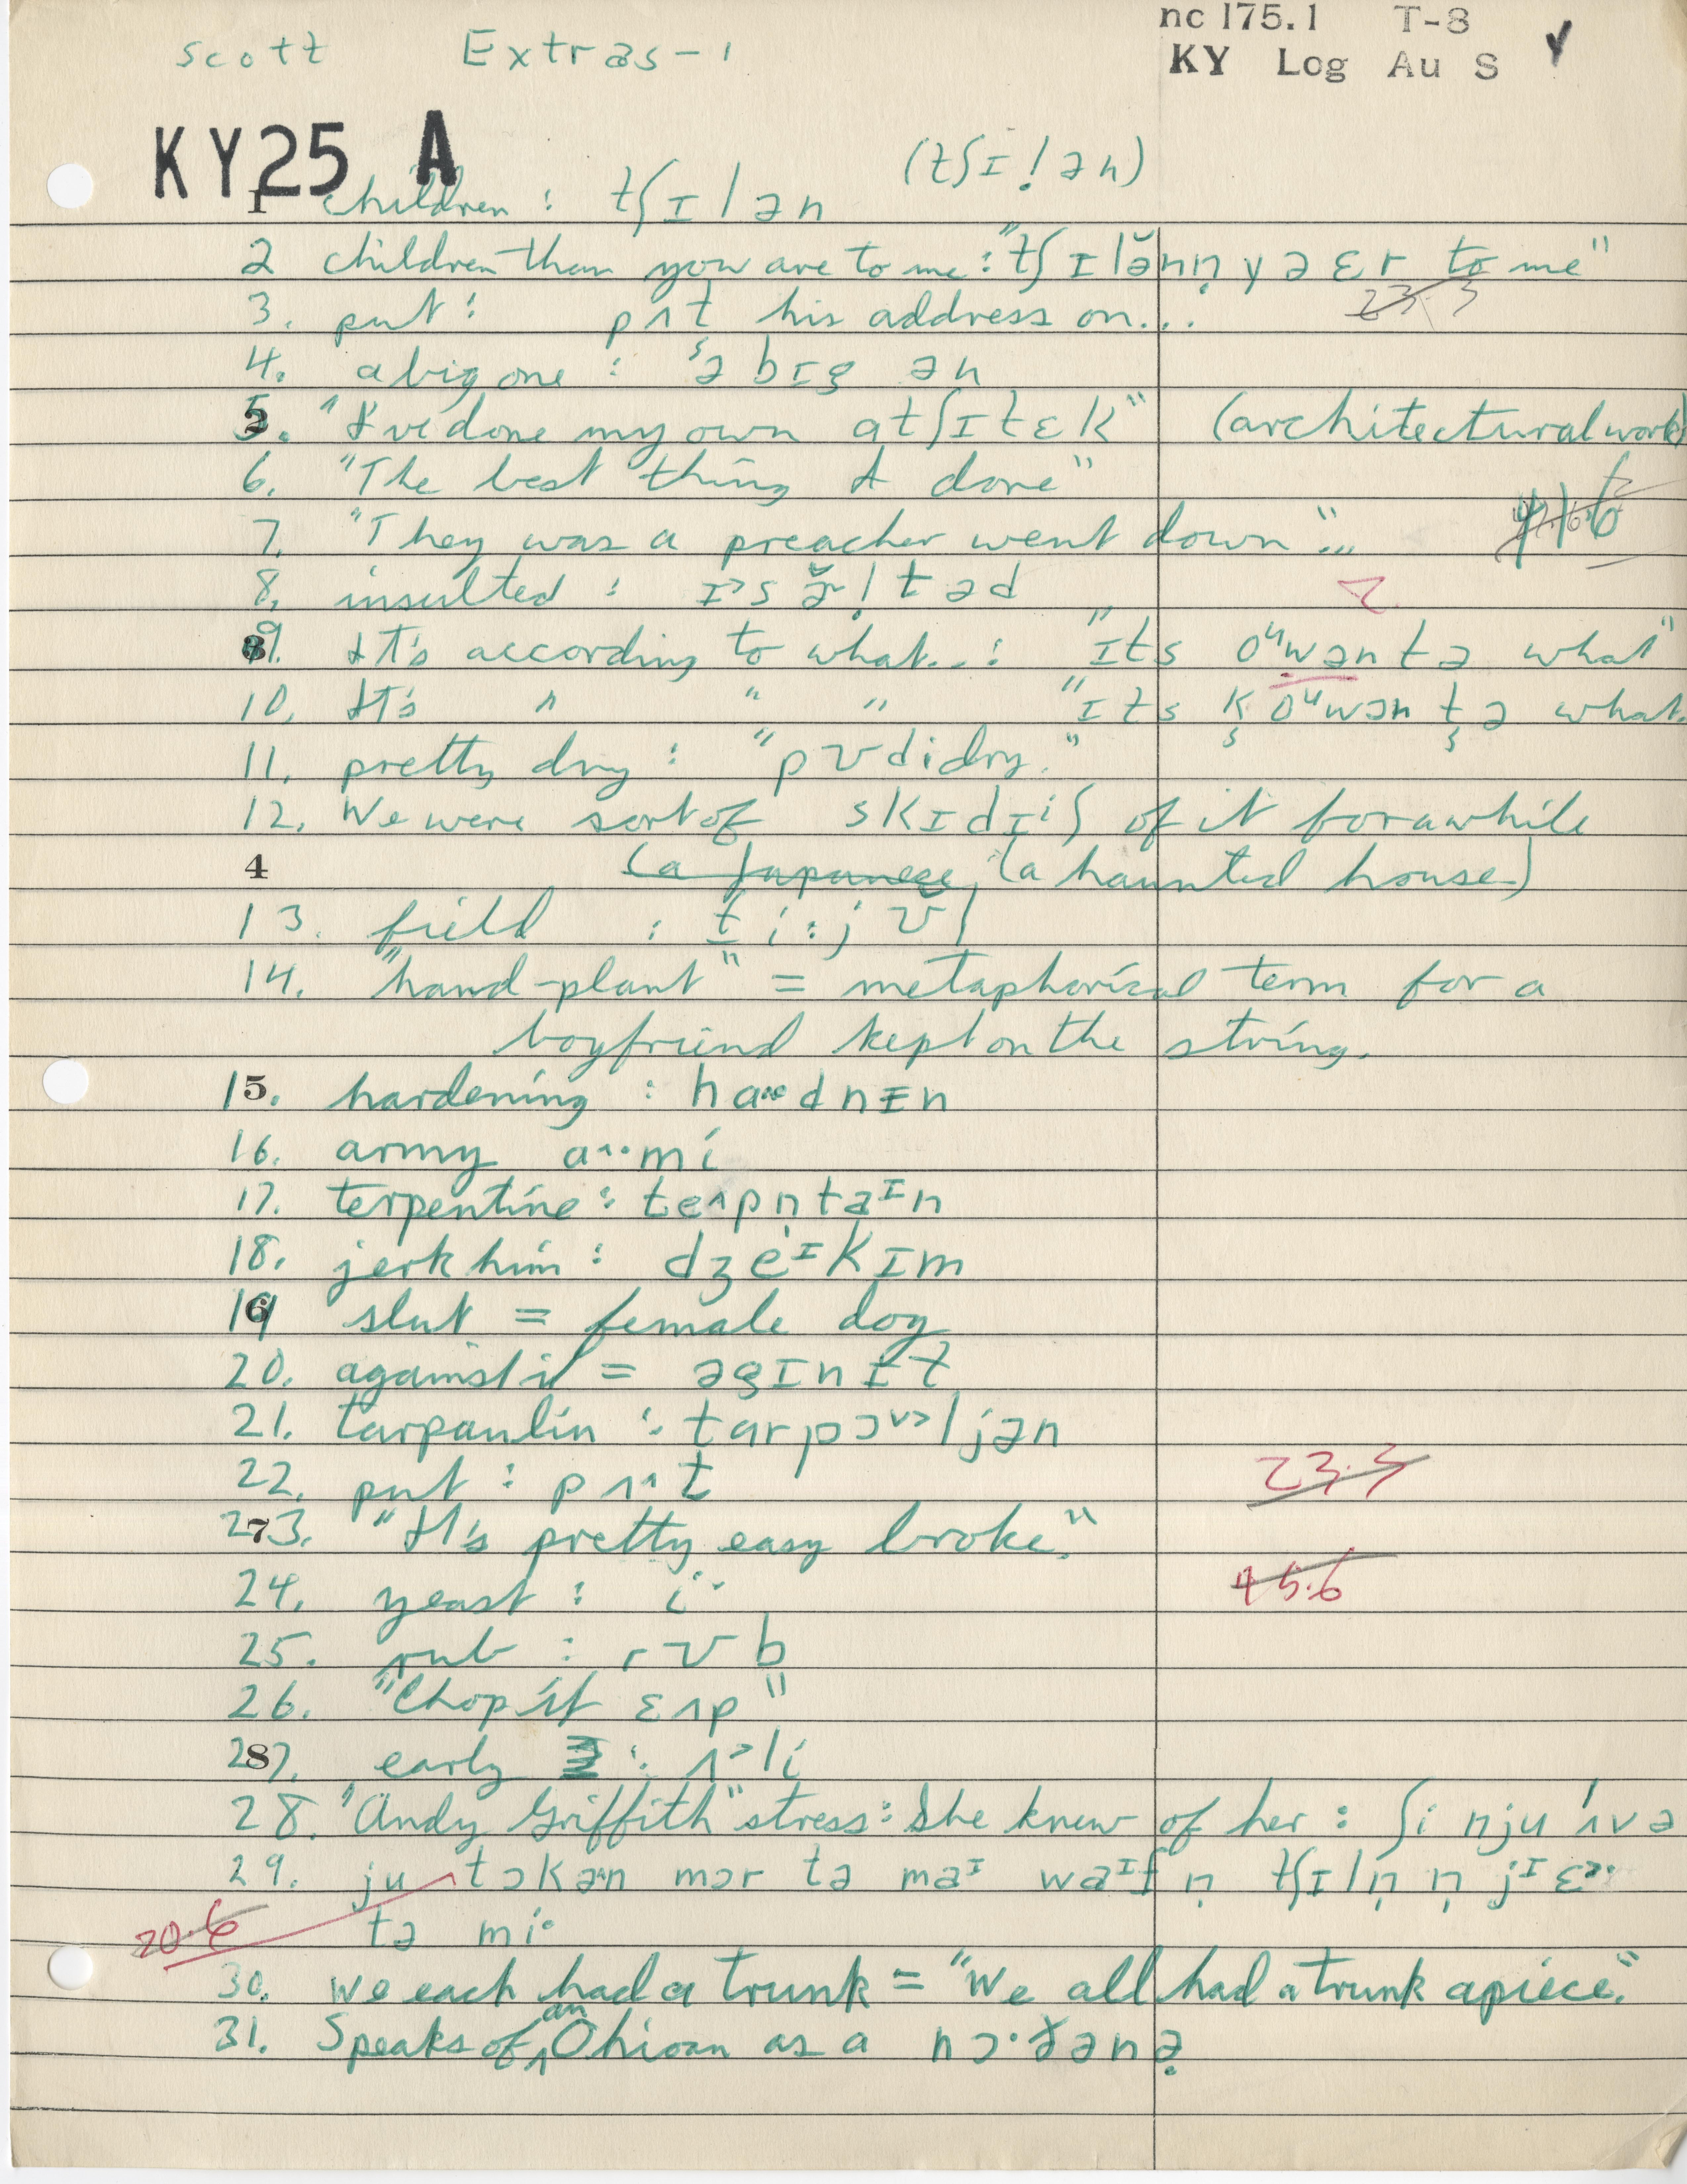 nc 175.1 T-8
scott Extras-1
KY Log Au S
KY25 A
(tʃɪl̩ən)
1 children : tʃɪlən
2 children than you are to me : "tʃɪlə̆nn̩ yə ɛr to me"
23.3
3. put : pʌt his address on...
4. a big one : ə bɪg ən
5. "I've done my own atʃɪtɛk" (architectural work)
6. "The best thing I done"
7. "They was a preacher went down"...
8. insulted :
39. It's according to what... : "ɪts oᵘwəntə what"
10. It's " " " "ɪts k̬oᵘwən t̬ə what.
11. pretty dry : "pʊdidry."
12. We were sort of skɪdɪⁱʃ of it for awhile
4 (a Japanese (a haunted house)
13. field :
14. "hand-plant" = metaphorical term for a
boyfriend kept on the string.
15. hardening :
16. army
17. terpentine : teʌpn̩taɪn
18. jerk him :
19 6 slut = female dog
20. against it = əgɪnɪt
21. tarpaulin :
22. put : pʌ^t
23.3
23. 7 "It's pretty easy broke."
24. yeast : i··
45.6
25. rub : rʊb
26. "Chop it ɛʌp"
27. 8 early : ʌ˃li
28. "Andy Griffith" stress : She knew of her : ʃi nju ˈʌvə
29. ju tɔkən mɔr tə maɪ waɪf n̩ tʃɪln̩ n̩
20.6
tə mi·
30. we each had a trunk = "We all had a trunk apiece."
31. Speaks of ^an Ohioan as a nɔ·ðənə